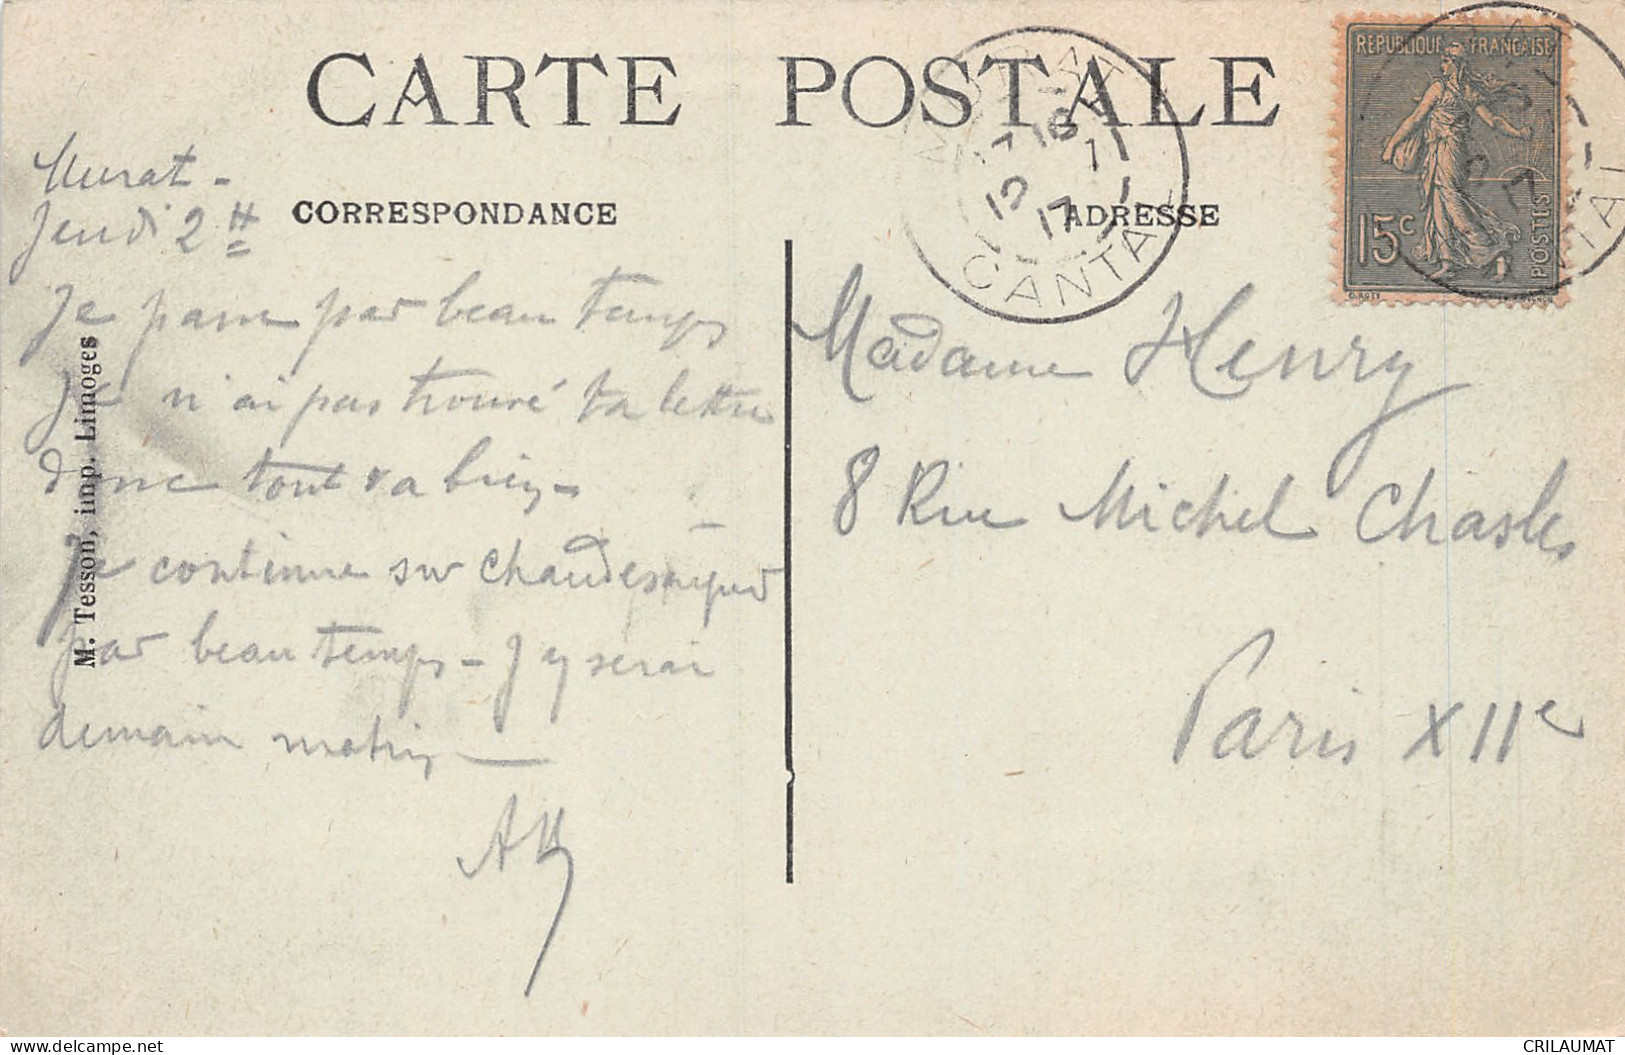 CARTE POSTALE
CORRESPONDANCE
ADRESSE
Murat -
Jeudi 2H
Je passe par beau temps
Je n'ai pas trouvé ta lettre
donc tout va bien -
Je continue sur Chaudesaigues
par beau temps - J'y serai
demain matin
AH
M. Tesson, imp. Limoges
MURAT
17 10
12 7
17
CANTAL
REPUBLIQUE FRANÇAISE
15c
POSTES
O. ROTY
CANTAL
Madame Henry
8 Rue Michel Chasles
Paris XIIe
CRILAUMAT